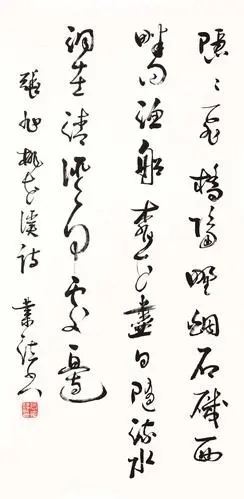 隱〻飛橋隔野烟石磯西
畔问漁船桃花盡日隨流水
洞在清溪何處邊
張旭桃花溪詩